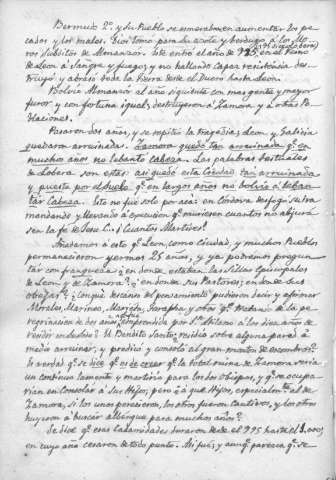 Bermudo 2.º y su Pueblo se esmeraban en aumentar los pe-
cados y los males. Dios tomó para su azote y verdugo a los Mo-
ros súbditos de Almanzor. Este entró el año de 995, en el Reino
(así dice Lobera)
de Leon á Sangre y fuego; y no hallando capaz resistencia des-
truyó y abrasó toda la tierra desde el Duero hasta Leon.
Bolvió Almanzor al año siguiente con mas gente y mayor
furor y con fortuna igual, destruyeron á Zamora y á otras Po-
blaciones.
Pasaron dos años, y se repitió la tragedia; Leon y Galicia
quedaron arruinadas. Zamora quedó tan arruinada q.e en
muchos años no lebantó cabeza. Las palabras
de Lobera son estas: así quedó esta Ciudad tan arruinada
y puesta por el suelo q.e en largos años no bolvió á leban-
tar Cabeza. Esto no fué solo por acá: en Córdova
mandando y llevando á execucion q.e muriesen cuantos no abjura-
sen la fe de Jesu C... ¡Cuantos Martires!
Añadamos á esto q.e Leon, como Ciudad, y muchos Pueblos
permanecieron yermos 25 años, y ya podremos pregun-
tar con franqueza: ¿en donde estaban las Sillas Episcopales
de Leon y de Zamora? ¿en donde sus Pastores; en donde sus
obejas? ¿con qué descanso del pensamiento pudieron decir y afirmar
Morales, Marineo, Marieta, y otros q.e de la pe-
regrinacion de dos años emprendida por S. Atilano á los diez años de
El Bendito Santo residia sobre alguna pared á
medio arruinar, y predicó y consoló al gran
la verdad q.e se dice q.e es de creer q.e la total ruina de Zamora seria
un continuo lamento y martirio para los dos Obispos, y q.e se ocupa-
rian en consolar á sus Hijos; pero ¿á que Hijos, especialm.te al de
Zamora, si los unos perecieron, los otros fueron cautivos, y los otros
huyeron á buscar albergue para muchos años?
Se dice q.e esas calamidades duraron desde el 995 hasta el
en cuyo año cesaron de todo punto. Así fué; y aunq.e parezca q.e se